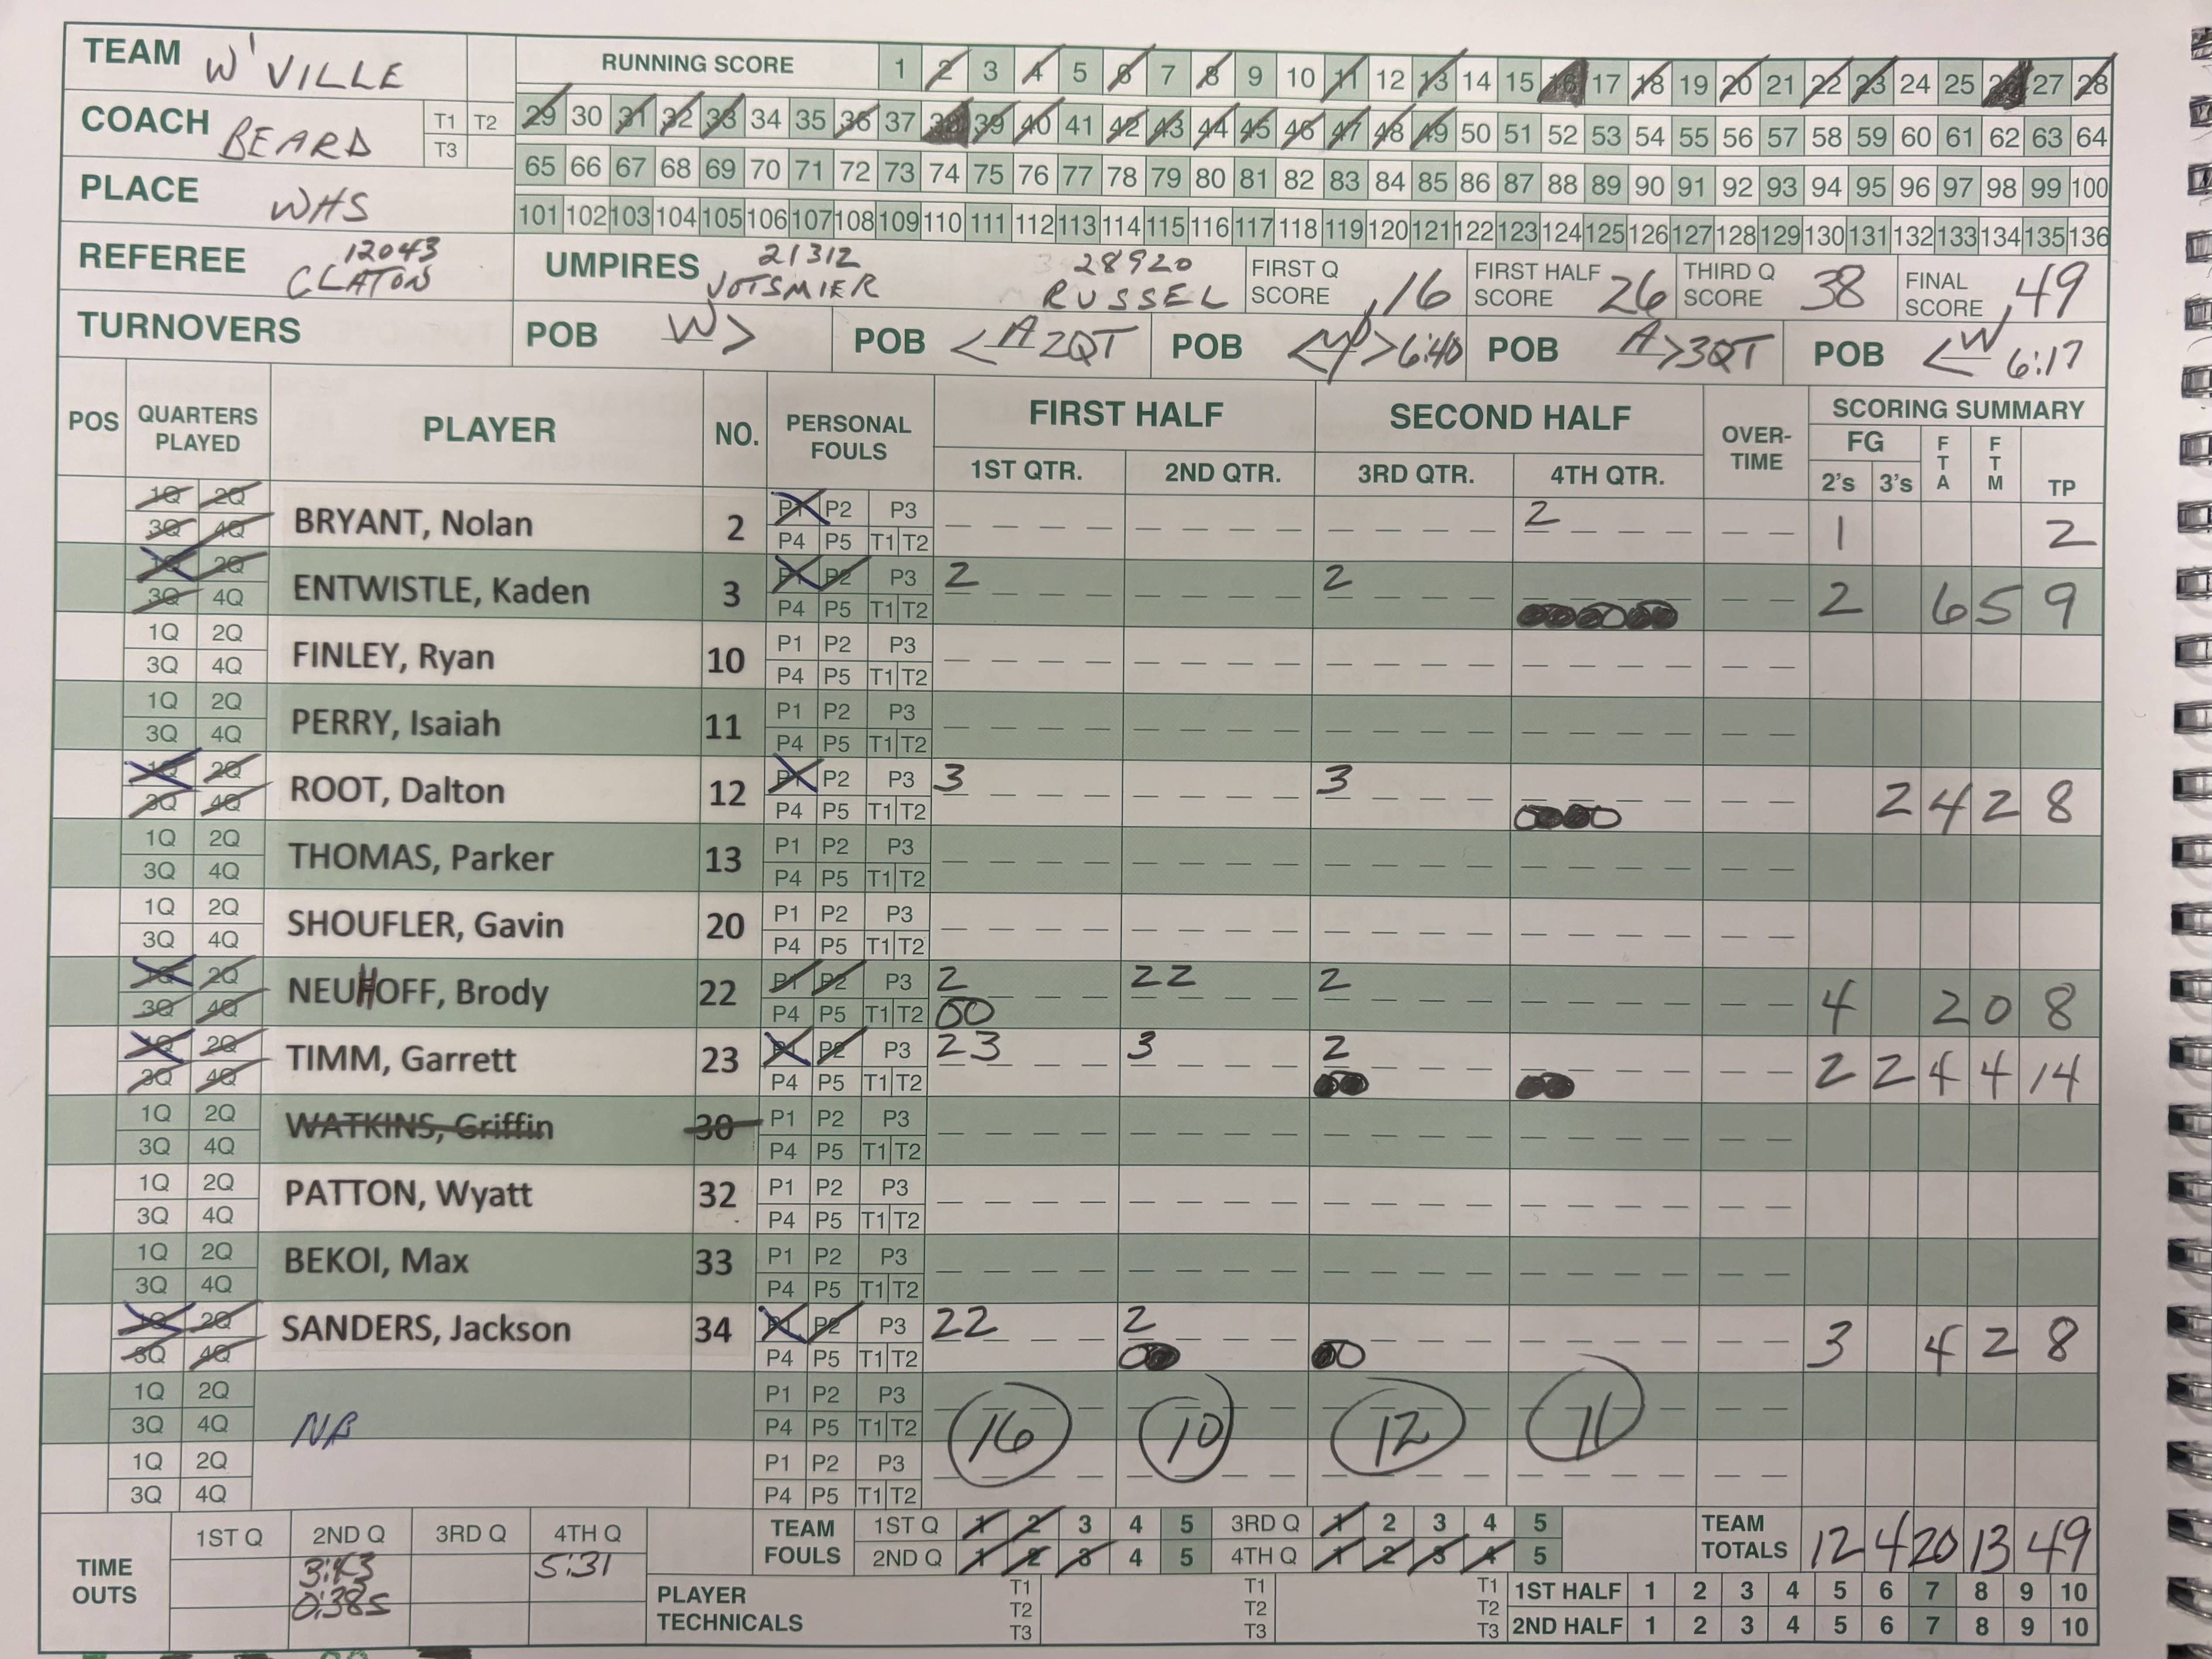 TEAM W'VILLE
RUNNING SCORE 1 2 3 4 5 6 7 8 9 10 11 12 13 14 15 16 17 18 19 20 21 22 23 24 25 26 27 28
COACH BEARD T1 T2 T3
29 30 31 32 33 34 35 36 37 38 39 40 41 42 43 44 45 46 47 48 49 50 51 52 53 54 55 56 57 58 59 60 61 62 63 64
65 66 67 68 69 70 71 72 73 74 75 76 77 78 79 80 81 82 83 84 85 86 87 88 89 90 91 92 93 94 95 96 97 98 99 100
PLACE WHS
101 102 103 104 105 106 107 108 109 110 111 112 113 114 115 116 117 118 119 120 121 122 123 124 125 126 127 128 129 130 131 132 133 134 135 136
REFEREE 12043 CLATON
UMPIRES 21312 VOTSMIER 28920 RUSSEL
FIRST Q SCORE 16
FIRST HALF SCORE 26
THIRD Q SCORE 38
FINAL SCORE 49
TURNOVERS
POB W >
POB < A 2QT
POB < > 6:40
POB A > 3QT
POB < W 6:17
POS QUARTERS PLAYED PLAYER NO. PERSONAL FOULS FIRST HALF SECOND HALF OVER-TIME SCORING SUMMARY
1ST QTR. 2ND QTR. 3RD QTR. 4TH QTR. FG 2's 3's FTA FTM TP
1Q 2Q 3Q 4Q BRYANT, Nolan 2 P1 P2 P3 P4 P5 T1 T2 2 1 2
1Q 2Q 3Q 4Q ENTWISTLE, Kaden 3 P1 P2 P3 P4 P5 T1 T2 2 2 2 6 5 9
1Q 2Q 3Q 4Q FINLEY, Ryan 10 P1 P2 P3 P4 P5 T1 T2
1Q 2Q 3Q 4Q PERRY, Isaiah 11 P1 P2 P3 P4 P5 T1 T2
1Q 2Q 3Q 4Q ROOT, Dalton 12 P1 P2 P3 P4 P5 T1 T2 3 3 2 4 2 8
1Q 2Q 3Q 4Q THOMAS, Parker 13 P1 P2 P3 P4 P5 T1 T2
1Q 2Q 3Q 4Q SHOUFLER, Gavin 20 P1 P2 P3 P4 P5 T1 T2
1Q 2Q 3Q 4Q NEUHOFF, Brody 22 P1 P2 P3 P4 P5 T1 T2 2 22 2 4 2 0 8
1Q 2Q 3Q 4Q TIMM, Garrett 23 P1 P2 P3 P4 P5 T1 T2 23 3 2 2 2 4 4 14
1Q 2Q 3Q 4Q WATKINS, Griffin 30 P1 P2 P3 P4 P5 T1 T2
1Q 2Q 3Q 4Q PATTON, Wyatt 32 P1 P2 P3 P4 P5 T1 T2
1Q 2Q 3Q 4Q BEKOI, Max 33 P1 P2 P3 P4 P5 T1 T2
1Q 2Q 3Q 4Q SANDERS, Jackson 34 P1 P2 P3 P4 P5 T1 T2 22 2 3 4 2 8
1Q 2Q 3Q 4Q NB P1 P2 P3 P4 P5 T1 T2 16 10 12 11
1Q 2Q 3Q 4Q P1 P2 P3 P4 P5 T1 T2
TIME OUTS 1ST Q 2ND Q 3RD Q 4TH Q
3:43 5:31
0:38s
TEAM FOULS 1ST Q 1 2 3 4 5 3RD Q 1 2 3 4 5
2ND Q 1 2 3 4 5 4TH Q 1 2 3 4 5
TEAM TOTALS 12 4 20 13 49
PLAYER TECHNICALS T1 T2 T3 T1 T2 T3 T1 T2 T3
1ST HALF 1 2 3 4 5 6 7 8 9 10
2ND HALF 1 2 3 4 5 6 7 8 9 10